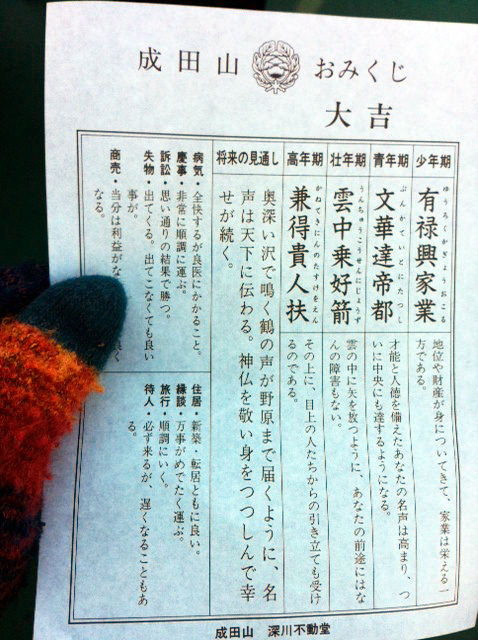 成田山 おみくじ
大吉
少年期
有禄興家業
ゆうろくかぎょうおこる
地位や財産が身についてきて、家業は栄える一
方である。
青年期
文華達帝都
ぶんかていとにたつし
才能と人徳を備えたあなたの名声は高まり、つ
いに中央にも達するようになる。
壮年期
雲中乗好箭
うんちゅうこうせんにじょうず
雲の中に矢を放つように、あなたの前途にはな
んの障害もない。
高年期
兼得貴人扶
かねてきにんのたすけをえん
その上に、目上の人たちからの引き立ても受け
るのである。
将来の見通し
奥深い沢で鳴く鶴の声が野原まで届くように、名
声は天下に伝わる。神仏を敬い身をつつしんで幸
せが続く。
病気・全快するが良医にかかること。
慶事・非常に順調に運ぶ。
訴訟・思い通りの結果で勝つ。
失物・出てくる。出てこなくても良い
事が。
商売・当分は利益がな
なる。
住居・新築・転居ともに良い。
縁談・万事がめでたく運ぶ。
旅行・順調にいく。
待人・必ず来るが、遅くなることもあ
る。
成田山 深川不動堂